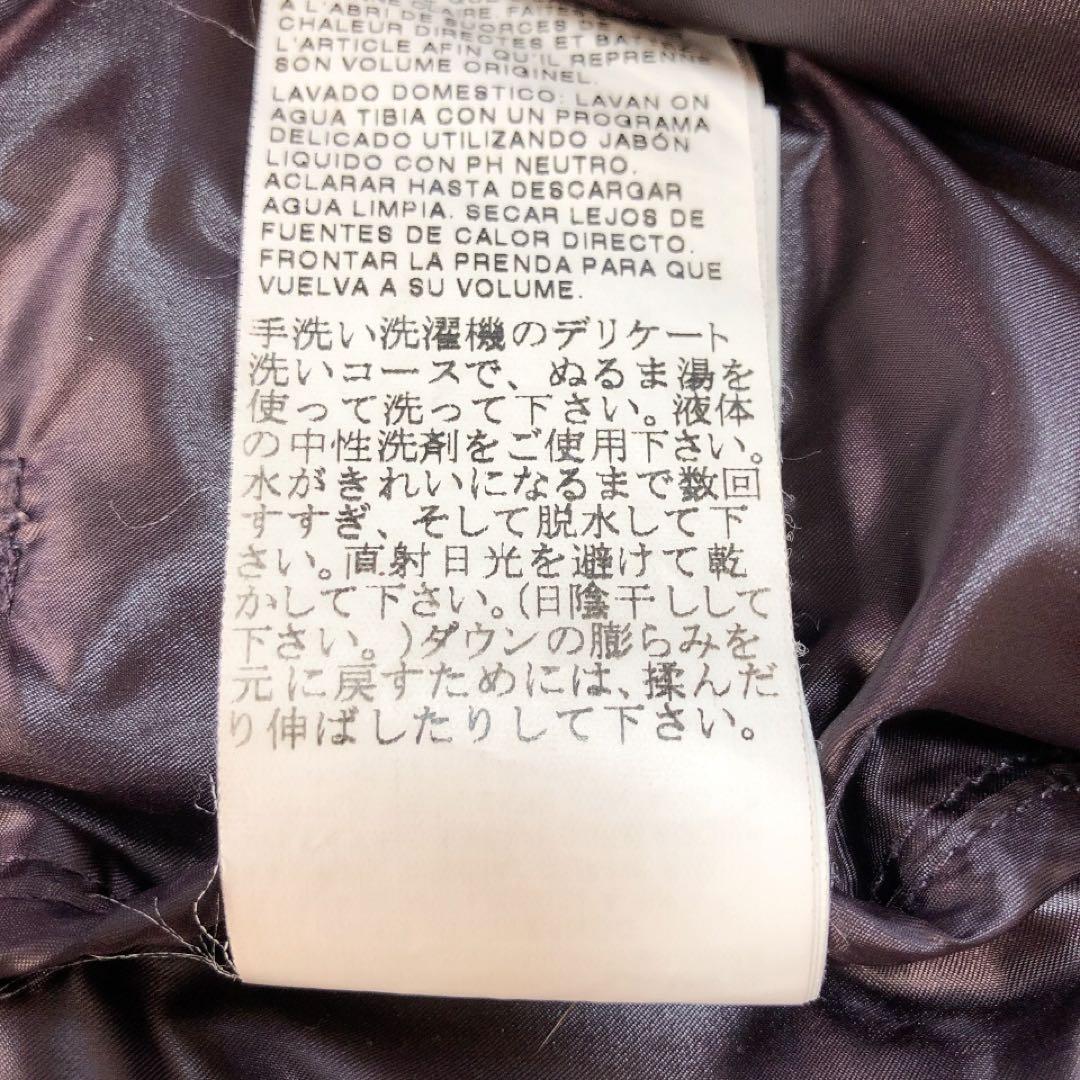 QUE
CLAIRE. FAITE
À L'ABRI DE SUORCES DE
CHALEUR DIRECTES ET
L'ARTICLE AFIN QU'IL REPRENNE
SON VOLUME ORIGINEL.
LAVADO DOMESTICO: LAVAN ON
AGUA TIBIA CON UN PROGRAMA
DELICADO UTILIZANDO JABÓN
LIQUIDO CON PH NEUTRO.
ACLARAR HASTA DESCARGAR
AGUA LIMPIA. SECAR LEJOS DE
FUENTES DE CALOR DIRECTO.
FRONTAR LA PRENDA PARA QUE
VUELVA A SU VOLUME.
手洗い洗濯機のデリケート
洗いコースで、ぬるま湯を
使って洗って下さい。液体
の中性洗剤をご使用下さい。
水がきれいになるまで数回
すすぎ、そして脱水して下
さい。直射日光を避けて乾
かして下さい。(日陰干しして
下さい。)ダウンの膨らみを
元に戻すためには、揉んだ
り伸ばしたりして下さい。